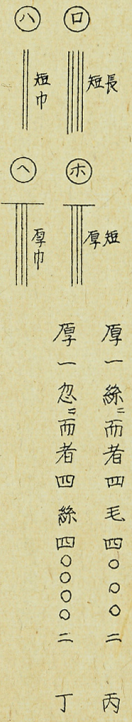 ロ
長短
ホ
短厚
厚一絲ニ而者四毛四〇〇〇二 丙
ハ
短巾
ヘ
厚巾
厚一忽ニ而者四絲四〇〇〇〇二 丁